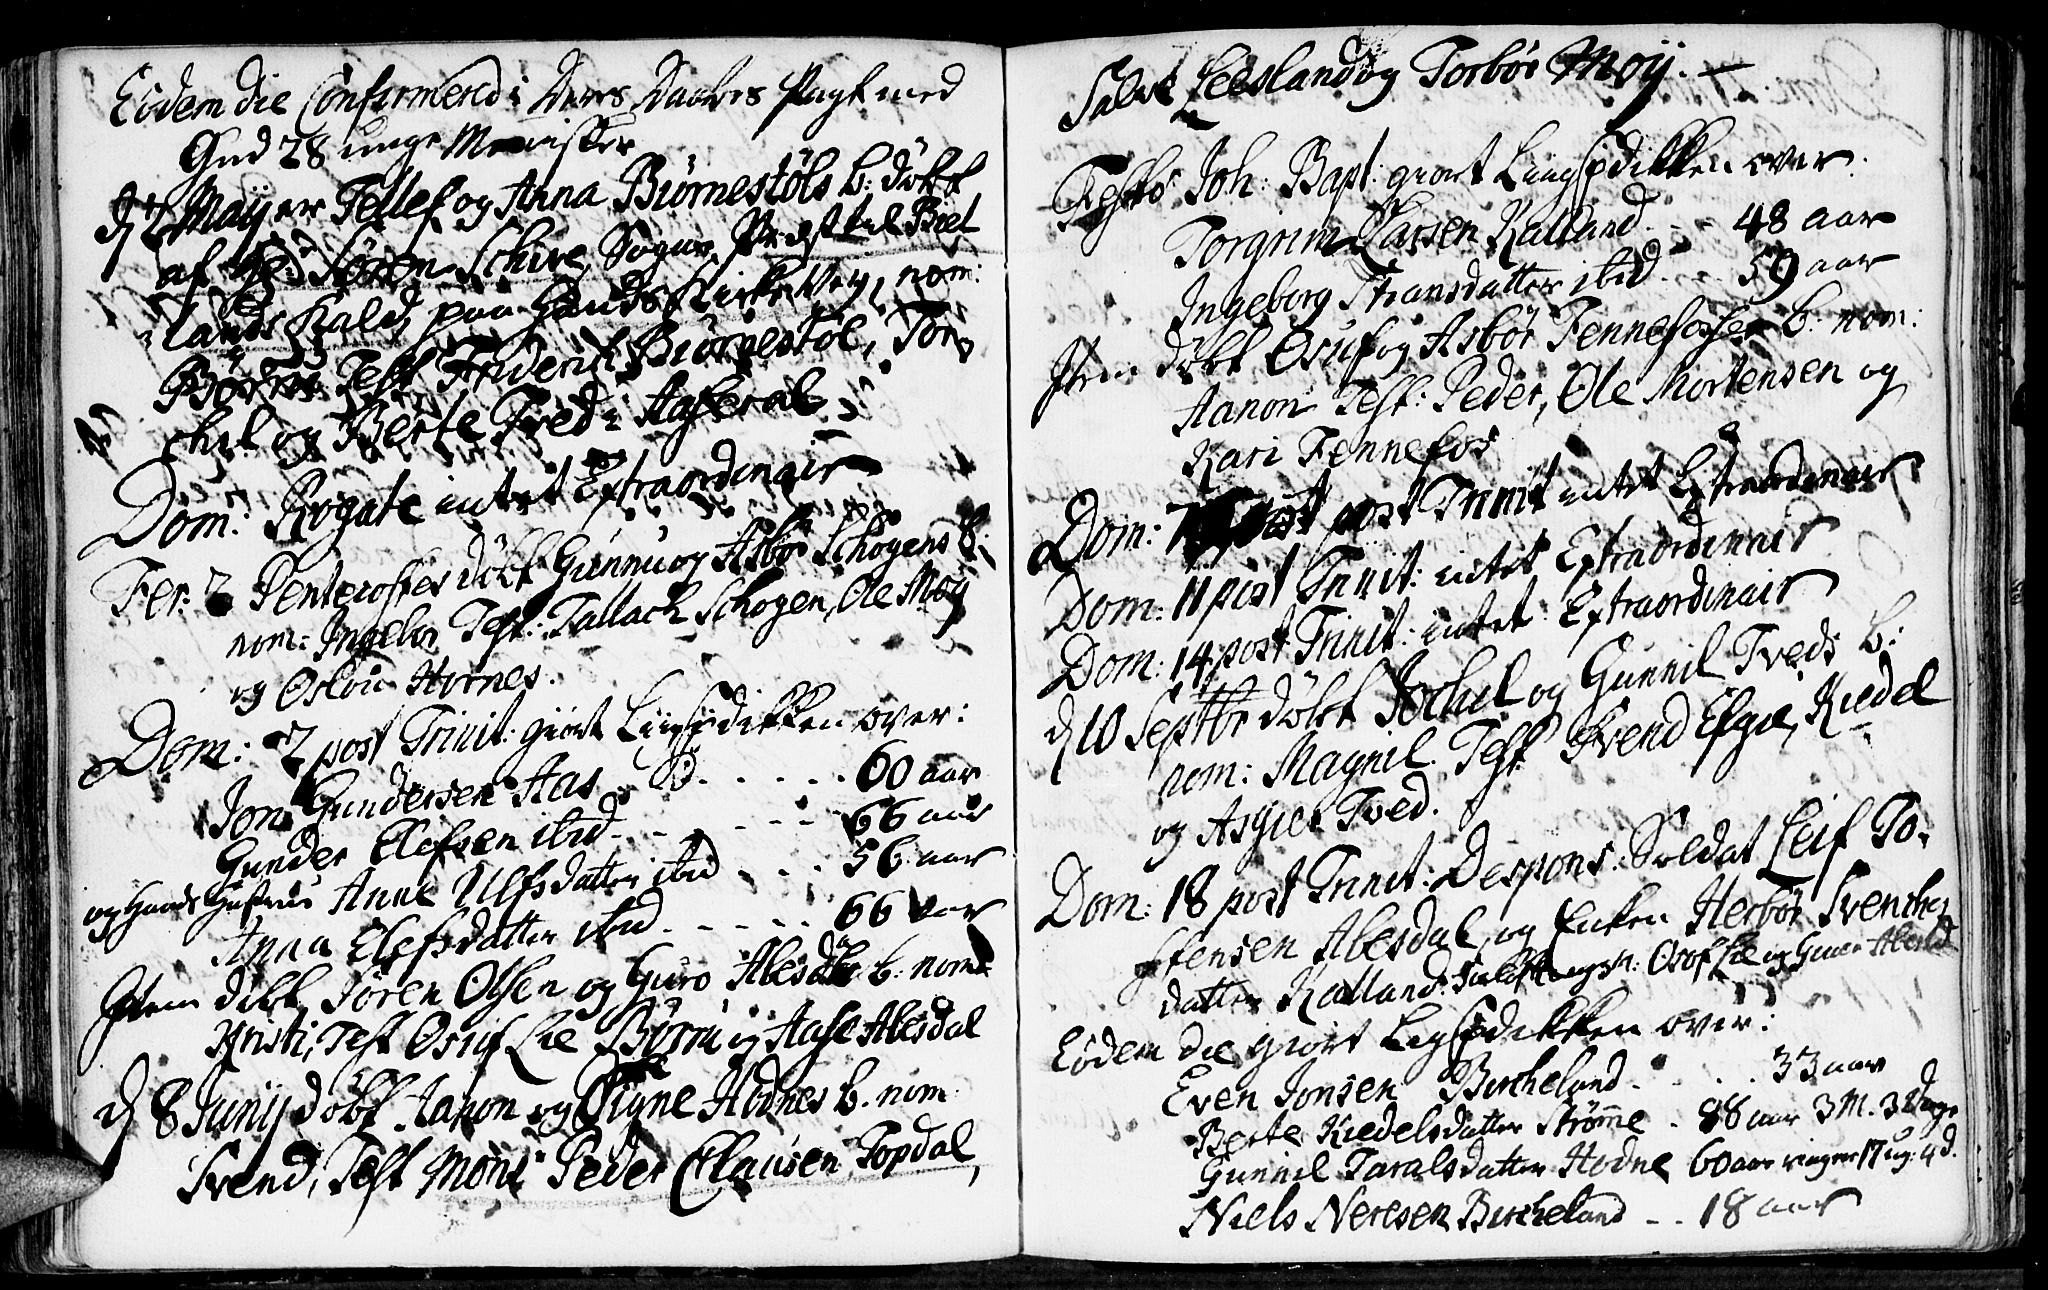 Eodem die Confirmered i Deres Daabes Pagt med
Gud 28 unge Mennisker
d 2 Maij er Tellef og Anna Biørnestøls b: døbt
af Søren Schive, Sogne Præst til Biel
lands Kald, paa Kirke Vey, nom:
Test Friderich Biørnestøl, Tor
chel og Berte Tved i Aaseral
Dom: Rogate intet Extraordinair
Fer: 2 Pentecostes døbt Gunnu og Asbør Schogens b:
nom: Ingebor Test: Tallach Schogen, Ole Moy
og Oslou Hornes.
Dom: 2 post Trinit: giort Liigprædikken over:
Jon Gundersen Aas - - - - - 60 aar
Gunder Elefsen ibid - - - - - 66 aar
og Hands Hustrue Anne Ulfsdatter ibid - - - 56 aar
Anna Elefsdatter ibid - - - - - 66 aar
Item døbt Søren Olsen og Guro Abesdal b: nom:
Kristi, Test Osuf Lie Børru og Aase Abesdal
d 8 Junij døbt Aanon og Signe Hodnes b. nom
Svend, Test Mons Peder Clausen Topdal,
Salve Leesland og Torbør Moij. —
Festo Joh: Bapt: giort Liigprædikken over:
Torgrim Larsen Katland - - - 48 aar
Ingeborg Transdatter ibid - - - 59 aar
Item døbt Osuf og Asbør Fennefosse b: nom:
Aanon Test: Peder, Ole Mortensen og
Kari Fennefos
Dom: 7 post Trinit intet Extraordinair
Dom: 11 post Trinit: intet Extraordinair
Dom: 14 post Trinit: intet Extraordinair
d 10 Septbr døbt Jochel og Gunnil Tveds b:
nom: Magnil. Test Svend Efgie, Kiedel
og Asgier Tved.
Dom: 18 post Trinit: Despons: Soldat Leif To-
stensen Abesdal, og Enken Herbør Svenches
datter Katland: Osof Lie og Abesdal
Eodem die giort Ligprædikken over:
Even Jonsen Bircheland - - - 33 aar
Berte Kiedelsdatter Strømme - 88 aar 3 M. 3 Dage
Gunnil Taralsdatter Hodne 60 aar ringer 17 ug: 4 d.
Niels Neresen Bircheland - - 18 aar